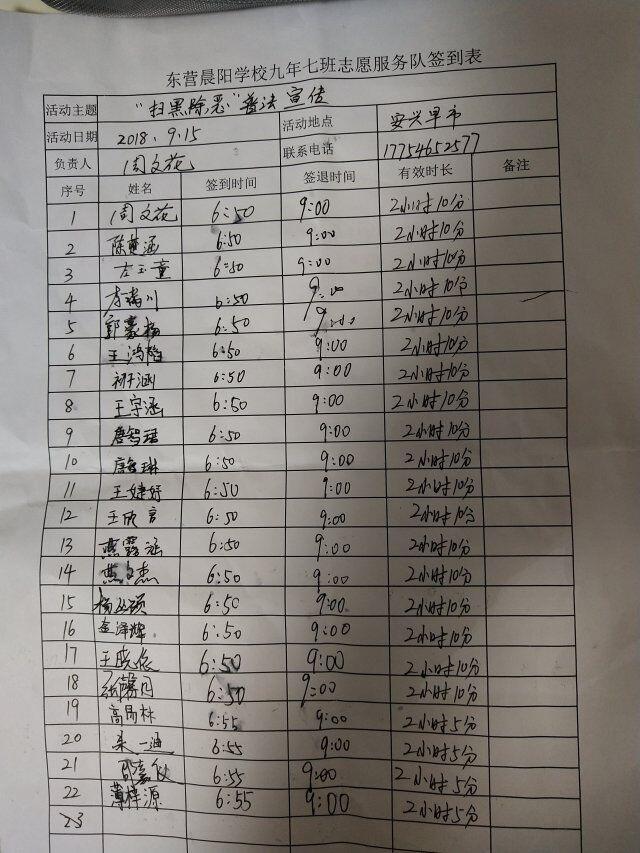 东营晨阳学校九年七班志愿服务队签到表
活动主题 "扫黑除恶"普法宣传
活动日期 2018.9.15 活动地点 安兴早市
负责人 周文花 联系电话 17754652577
序号 姓名 签到时间 签退时间 有效时长 备注
1 周文花 6:50 9:00 2小时10分
2 陈萱涵 6:50 9:00 2小时10分
3 左玉童 6:50 9:00 2小时10分
4 李瑞川 6:50 9:00 2小时10分
5 郭豪杨 6:50 9:00 2小时10分
6 王鸿 6:50 9:00 2小时10分
7 6:50 9:00 2小时10分
8 王宇涵 6:50 9:00 2小时10分
9 唐智珺 6:50 9:00 2小时10分
10 唐智琳 6:50 9:00 2小时10分
11 王婕妤 6:50 9:00 2小时10分
12 王欣言 6:50 9:00 2小时10分
13 燕露涵 6:50 9:00 2小时10分
14 燕文杰 6:50 9:00 2小时10分
15 杨 6:50 9:00 2小时10分
16 金泽辉 6:50 9:00 2小时10分
17 王晓依 6:50 9:00 2小时10分
18 6:50 9:00 2小时10分
19 高尚林 6:55 9:00 2小时5分
20 一涵 6:55 9:00 2小时5分
21 6:55 9:00 2小时5分
22 薄梓源 6:55 9:00 2小时5分
23